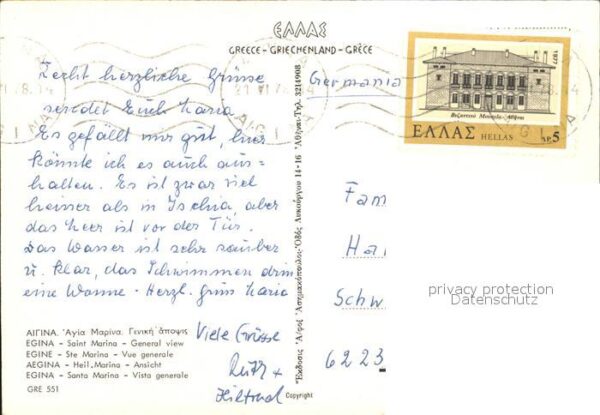 ΕΛΛΑΣ
GREECE - GRIECHENLAND - GRÈCE
Recht herzliche Grüsse
sendet Euch Maria
Es gefällt mir gut, hier
könnte ich es auch aus=
halten. Es ist zwar viel
heisser als in Ischia, aber
das Meer ist vor der Tür.
Das Wasser ist sehr sauber
u. klar, das Schwimmen drin
eine Wonne - Herzl. Gruss Maria
Viele Grüsse
Ruth +
Hiltrud
ΑΙΓΙΝΑ. Ἁγία Μαρίνα. Γενική ἄποψις
EGINA - Saint Marina - General view
EGINE - Ste Marina - Vue generale
AEGINA - Heil. Marina - Ansicht
EGINA - Santa Marina - Vista generale
GRE 551
14-16 Ἀθῆναι-Τηλ. 3214908
Copyright
Germania
1977
Βυζαντινό Μουσεῖο - Ἀθῆναι
ΕΛΛΑΣ HELLAS ΔΡ.5
21 VI 78.14
ΑΙGINA
Fam
Ha
Schw
6223
privacy protection
Datenschutz